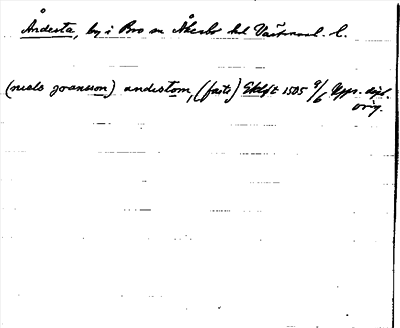 Åndesta, by i Bro sn Åkerbo hd Västmanl. l.
(niels joansson) andistom, (faste) Eklsft 1505 9/6 Upps. dipl.
orig.